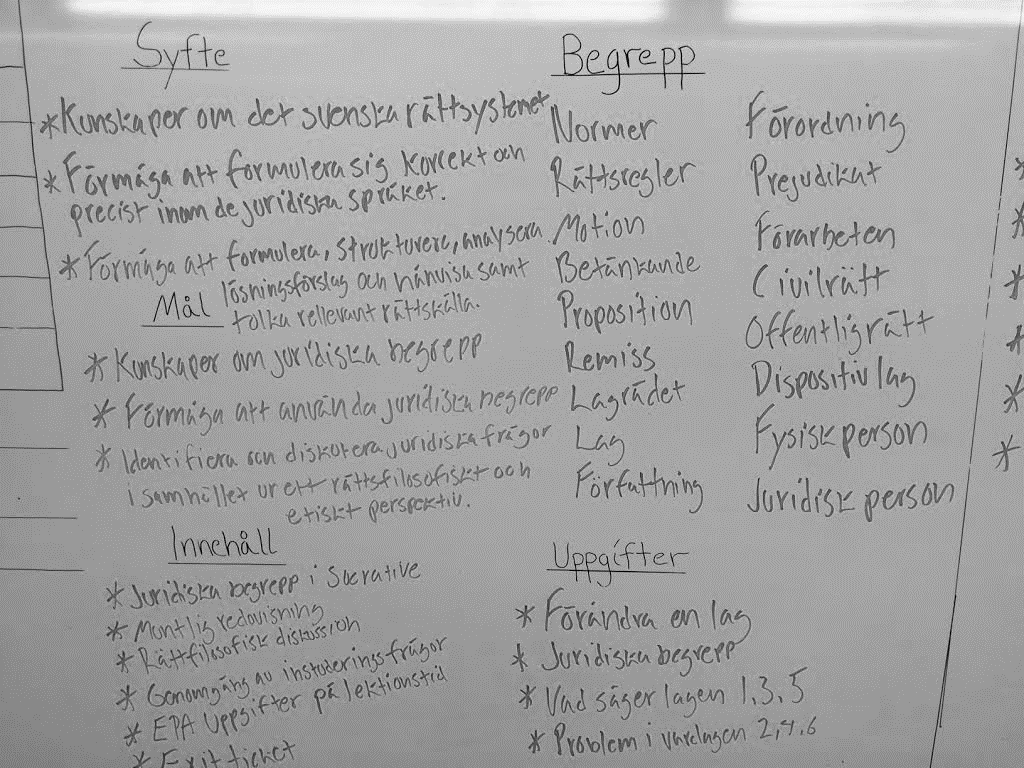 Syfte
*Kunskaper om det svenska rättsystemet
*Förmåga att formulera sig korrekt och
precist inom de juridiska språket.
*Förmåga att formulera, strukturera, analysera
lösningsförslag och hänvisa samt
tolka rellevant rättskälla.
Mål
*Kunskaper om juridiska begrepp
*Förmåga att använda juridiska begrepp
*Identifiera och diskutera juridiska frågor
i samhället ur ett rättsfilosofiskt och
etiskt perspektiv.
Innehåll
*Juridiska begrepp i Socrative
*Muntlig redovisning
*Rättfilosofisk diskussion
*Genomgång av instuderingsfrågor
*EPA Uppgifter på lektionstid
*Exit ticket
Begrepp
Normer
Rättsregler
Motion
Betänkande
Proposition
Remiss
Lagrådet
Lag
Författning
Förordning
Prejudikat
Förarbeten
Civilrätt
Offentligrätt
Dispositiv lag
Fysisk person
Juridisk person
Uppgifter
*Förändra en lag
*Juridiska begrepp
*Vad säger lagen 1,3,5
*Problem i vardagen 2,4,6